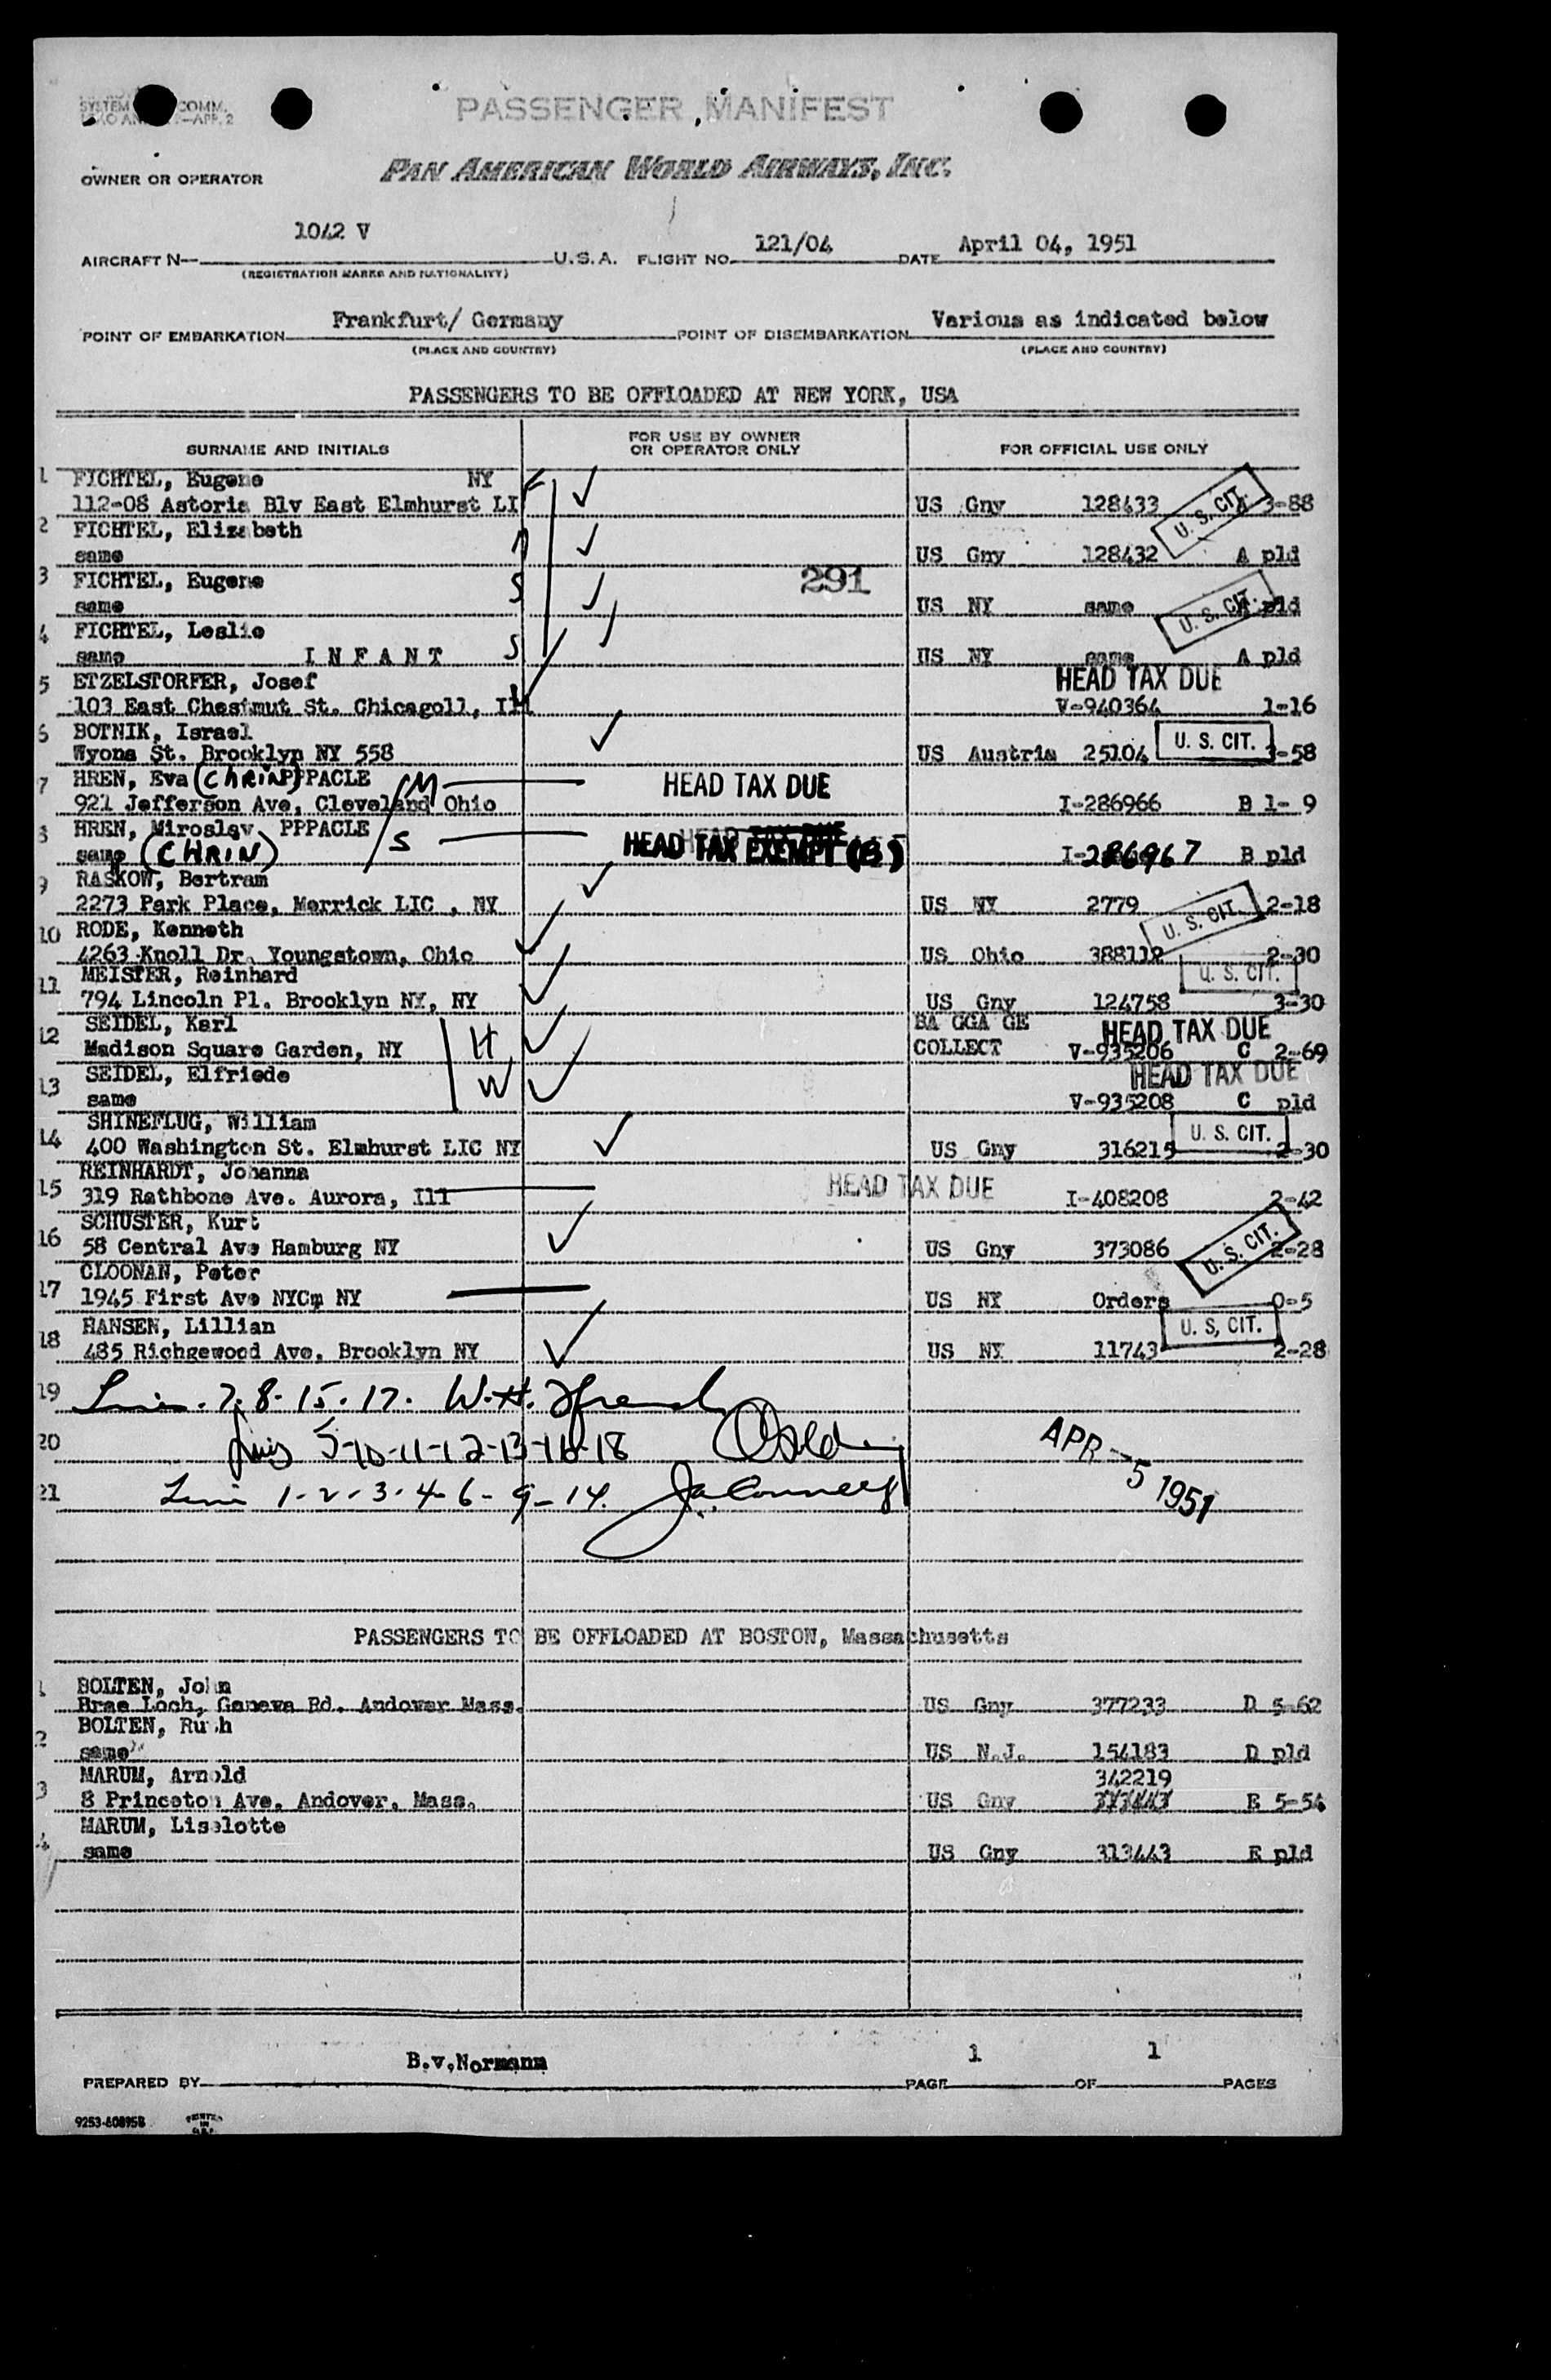 SYSTEM COMM.
PASSENGER MANIFEST
OWNER OR OPERATOR PAN AMERICAN WORLD AIRWAYS, INC.
AIRCRAFT N— 1042 V U.S.A. FLIGHT NO. 121/04 DATE April 04, 1951
(REGISTRATION MARKS AND NATIONALITY)
POINT OF EMBARKATION Frankfurt/ Germany POINT OF DISEMBARKATION Various as indicated below
(PLACE AND COUNTRY) (PLACE AND COUNTRY)
PASSENGERS TO BE OFFLOADED AT NEW YORK, USA
SURNAME AND INITIALS FOR USE BY OWNER OR OPERATOR ONLY FOR OFFICIAL USE ONLY
1 FICHTEL, Eugene NY
112-08 Astoria Blv East Elmhurst LI US Gny 128433 A 3-88 U. S. CIT.
2 FICHTEL, Elizabeth
same US Gny 128432 A pld
3 FICHTEL, Eugene S 291
same US NY same A pld U. S. CIT.
4 FICHTEL, Leslie
same I N F A N T S US NY same A pld
5 ETZELSTORFER, Josef HEAD TAX DUE
103 East Chestmut St. Chicagoll, Ill V-940364 1-16
6 BOTNIK, Israel
Wyona St. Brooklyn NY 558 US Austria 25104 U. S. CIT. 3-58
7 HREN, Eva (CHRIN) PPPACLE M HEAD TAX DUE
921 Jefferson Ave, Cleveland Ohio I-286966 B 1- 9
8 HREN, Miroslav PPPACLE S HEAD TAX DUE
same (CHRIN) HEAD TAX EXEMPT (B) I-286967 B pld
9 RASKOW, Bertram
2273 Park Place, Merrick LIC , NY US NY 2779 U. S. CIT. 2-18
10 RODE, Kenneth
4263 Knoll Dr. Youngstown, Ohio US Ohio 388112 2-30
11 MEISTER, Reinhard U. S. CIT.
794 Lincoln Pl. Brooklyn NY, NY US Gny 124758 3-30
12 SEIDEL, Karl H BA GGA GE HEAD TAX DUE
Madison Square Garden, NY COLLECT V-935206 C 2-69
13 SEIDEL, Elfriede W HEAD TAX DUE
same V-935208 C pld
14 SHINEFLUG, William
400 Washington St. Elmhurst LIC NY US Gny 316215 U. S. CIT. 2-30
15 REINHARDT, Johanna HEAD TAX DUE
319 Rathbone Ave. Aurora, Ill I-408208 2-42
16 SCHUSTER, Kurt
58 Central Ave Hamburg NY US Gny 373086 U. S. CIT. 2-28
17 CLOONAN, Peter
1945 First Ave NYCm NY US NY Orders 0-5
18 HANSEN, Lillian U. S. CIT.
485 Richgewood Ave, Brooklyn NY US NY 11743 2-28
19 7. 8. 15. 17. W.H.
20 5-10-11-12-13-16-18 APR -5 1951
21 1-2-3-4-6-9-14.
PASSENGERS TO BE OFFLOADED AT BOSTON, Massachusetts
1 BOLTEN, John
Brae Loch, Geneva Rd. Andover Mass. US Gny 377233 D 5-62
2 BOLTEN, Ruth
same US N.J. 154183 D pld
3 MARUM, Arnold 342219
8 Princeton Ave. Andover, Mass. US Gny 313443 E 5-54
4 MARUM, Liselotte
same US Gny 313443 E pld
PREPARED BY B.v.Normann PAGE 1 OF 1 PAGES
9253-608958 PRINTED IN